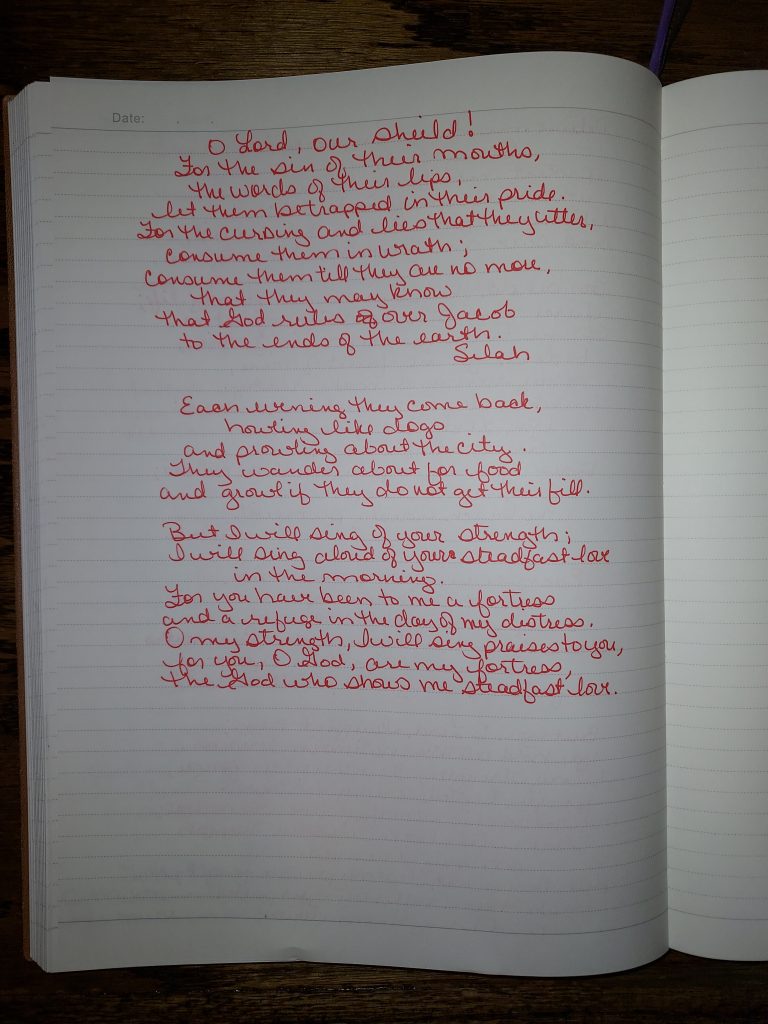 Date:
O Lord, our sheild!
For the sin of their mouths,
the words of their lips,
let them be trapped in their pride.
For the cursing and lies that they utter,
consume them in wrath;
consume them till they are no more,
that they may know
that God rules over Jacob
to the ends of the earth.
Selah
Each evening they come back,
howling like dogs
and prowling about the city.
They wander about for food
and growl if they do not get their fill.
But I will sing of your strength;
I will sing aloud of your steadfast love
in the morning.
For you have been to me a fortress
and a refuge in the day of my distress.
O my strength, I will sing praises to you,
for you, O God, are my fortress,
the God who shows me steadfast love.